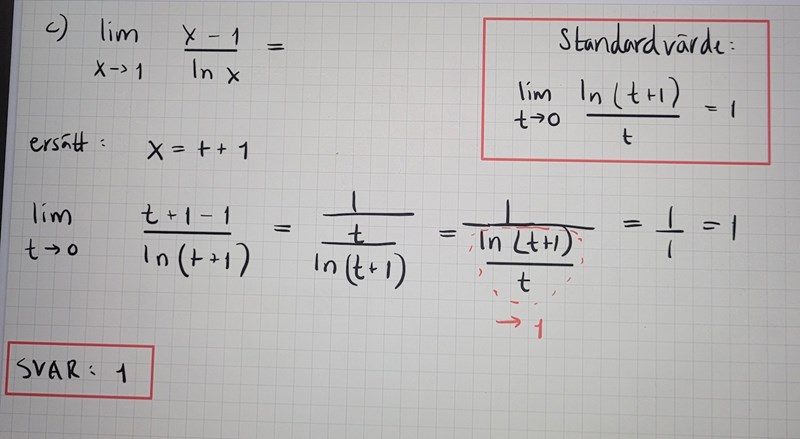 c) lim x→1 (x - 1)/(ln x) =
Standardvärde:
lim t→0 (ln(t+1))/t = 1
ersätt: x = t + 1
lim t→0 (t+1-1)/(ln(t+1)) = 1/(t/(ln(t+1))) = 1/((ln(t+1))/t) = 1/1 = 1
→ 1
SVAR: 1